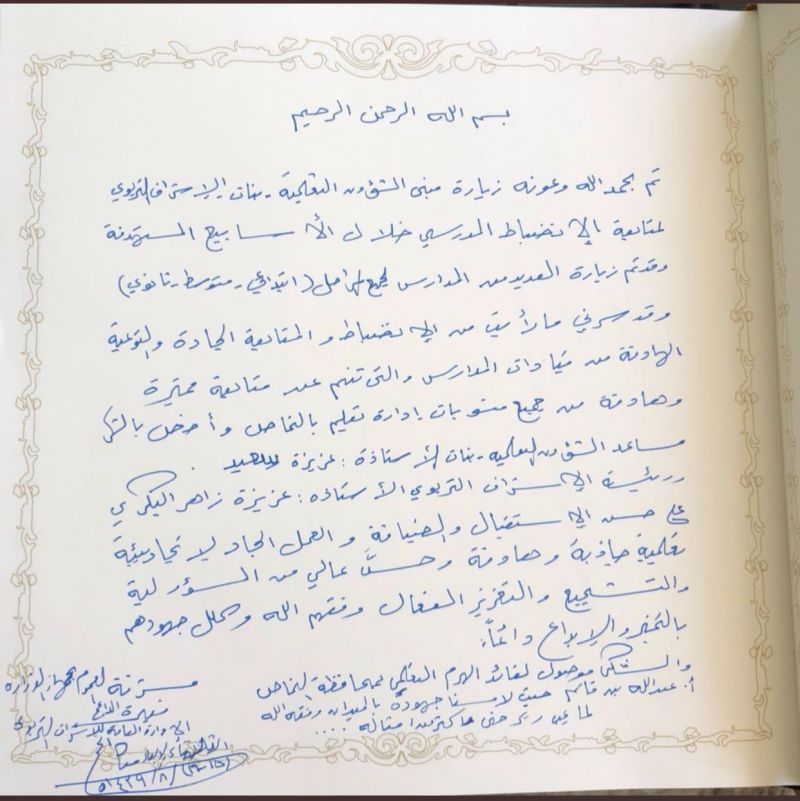 بسم الله الرحمن الرحيم
تم بحمد الله وعونه زيارة مبنى الشؤون التعليمية - بنات الإشراف التربوي
لمتابعة الإنضباط المدرسي خلال الأسابيع المستهدفة
وقد تم زيارة العديد من المدارس لجميع المراحل (ابتدائي - متوسط - ثانوي)
وقد سرني ما رأيت من الإنضباط والمتابعة الجادة والتوعية
الهادفة من قيادات المدارس والتي تنم عن متابعة مميزة
وهادفة من جميع منسوبات إدارة تعليم بالنماص وأخص بالشكر
مساعد الشؤون التعليمية - بنات الأستاذة : عزيزة سعيد .
ورئيسة الإشراف التربوي الأستاذه : عزيزة زاهر البكري
على حسن الإستقبال والضيافة والعمل الجاد لإيجاد بيئة
تعليمية جاذبة وهادفة وحسَّ عالي من المسؤولية
والتشجيع والتعزيز الفعال وفقهم الله وكلل جهودهم
بالتميز والإبداع دائماً.
والشكر موصول لقائد الهرم التعليمي بمحافظة النماص
أ. عبدالله بن قاسم حيث لامسنا جهوده بالميدان وفقه الله
لما يحب ويرضى وكثر من امثاله ....
مشرفة عموم بجهاز الوزارة
الإدارة العامة للإشراف التربوي
١٤٣٩/٨/